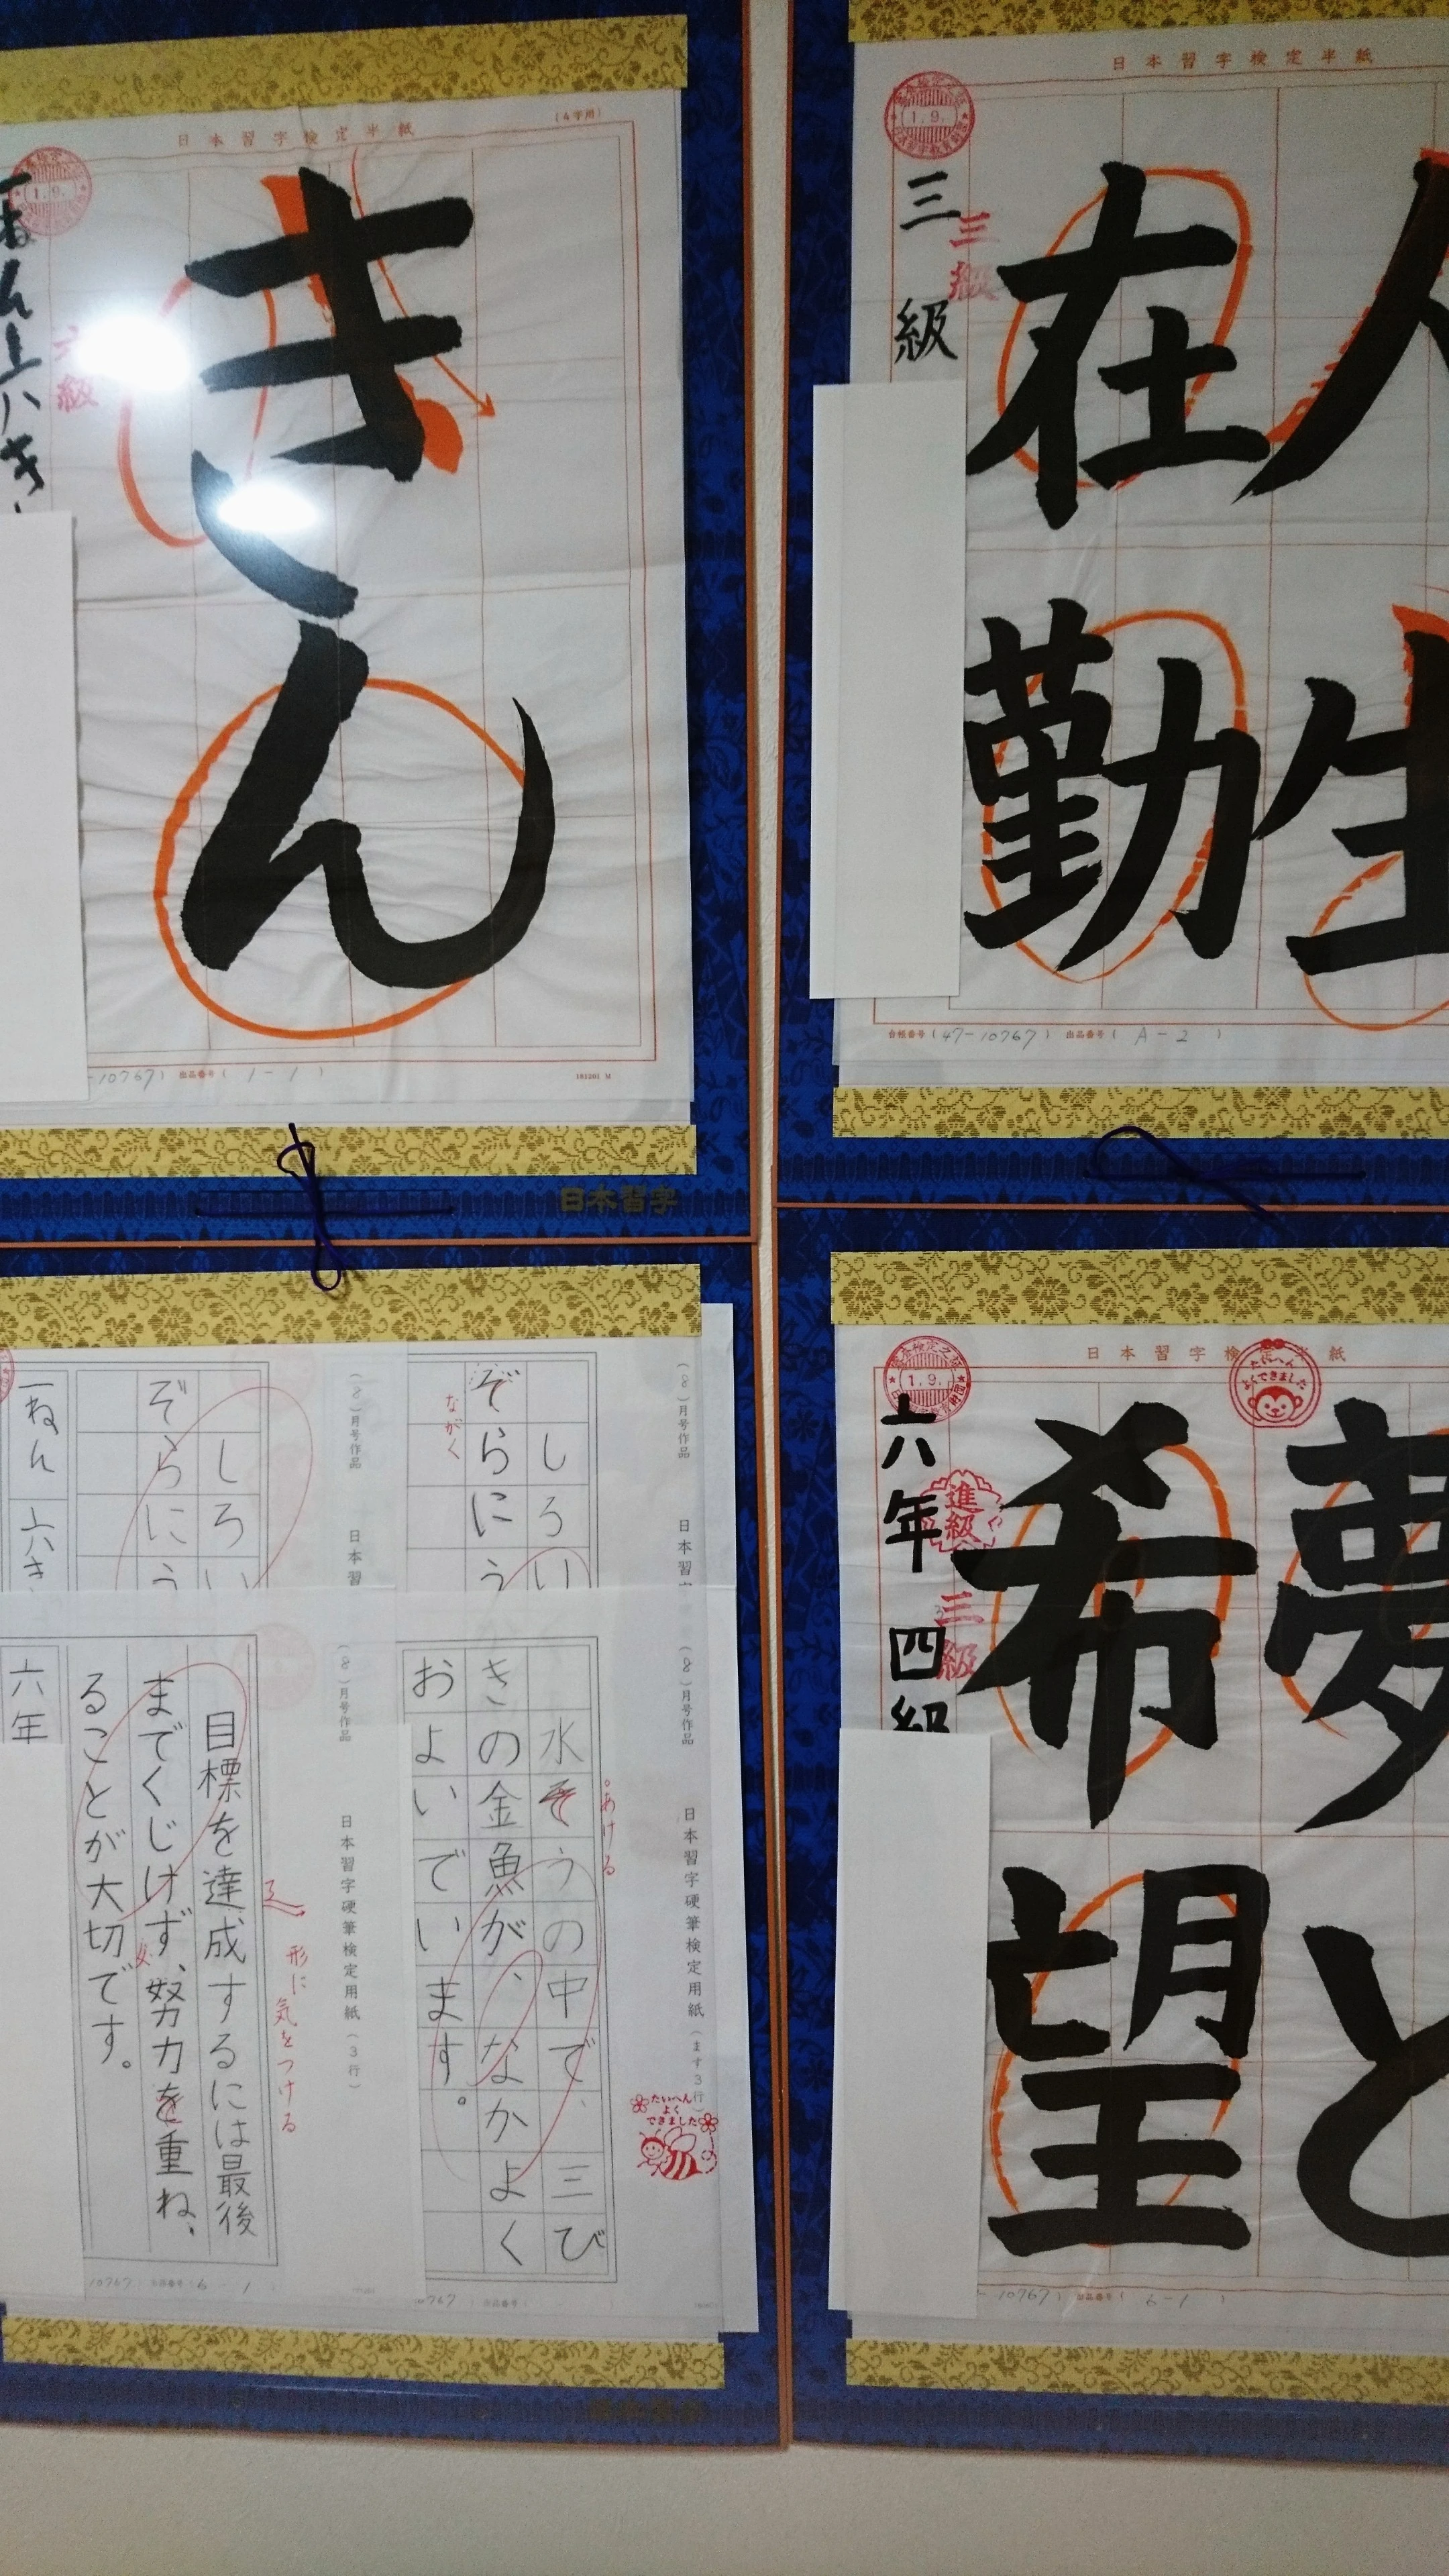 日本習字検定半紙
(4字用)
きん
六級
1.9.
-10767) 出品番号( 1-1 )
181201 M
日本習字
日本習字検定半紙
人生
在勤
三級
三級
1.9.
台帳番号(47-10767) 出品番号( A-2 )
(8)月号作品 日本習
しろい
ぞらにう
ながく
(8)月号作品 日本習
しろい
ぞらにう
一ねん 六き
(8)月号作品 日本習字硬筆検定用紙(ます3行)
水そうの中で、三び
きの金魚が、なかよく
およいでいます。
あける
たいへん
よく
できました
(8)月号作品 日本習字硬筆検定用紙(3行)
目標を達成するには最後
までくじけず、努力を重ね、
ることが大切です。
六年
形に気をつける
10767) 出品番号( 6-1
0767 ) 出品番号(
日本習字検定半紙
夢と
希望
六年 四級
進級
三級
1.9.
たいへん
よくできました
-10767) 出品番号( 6-1 )